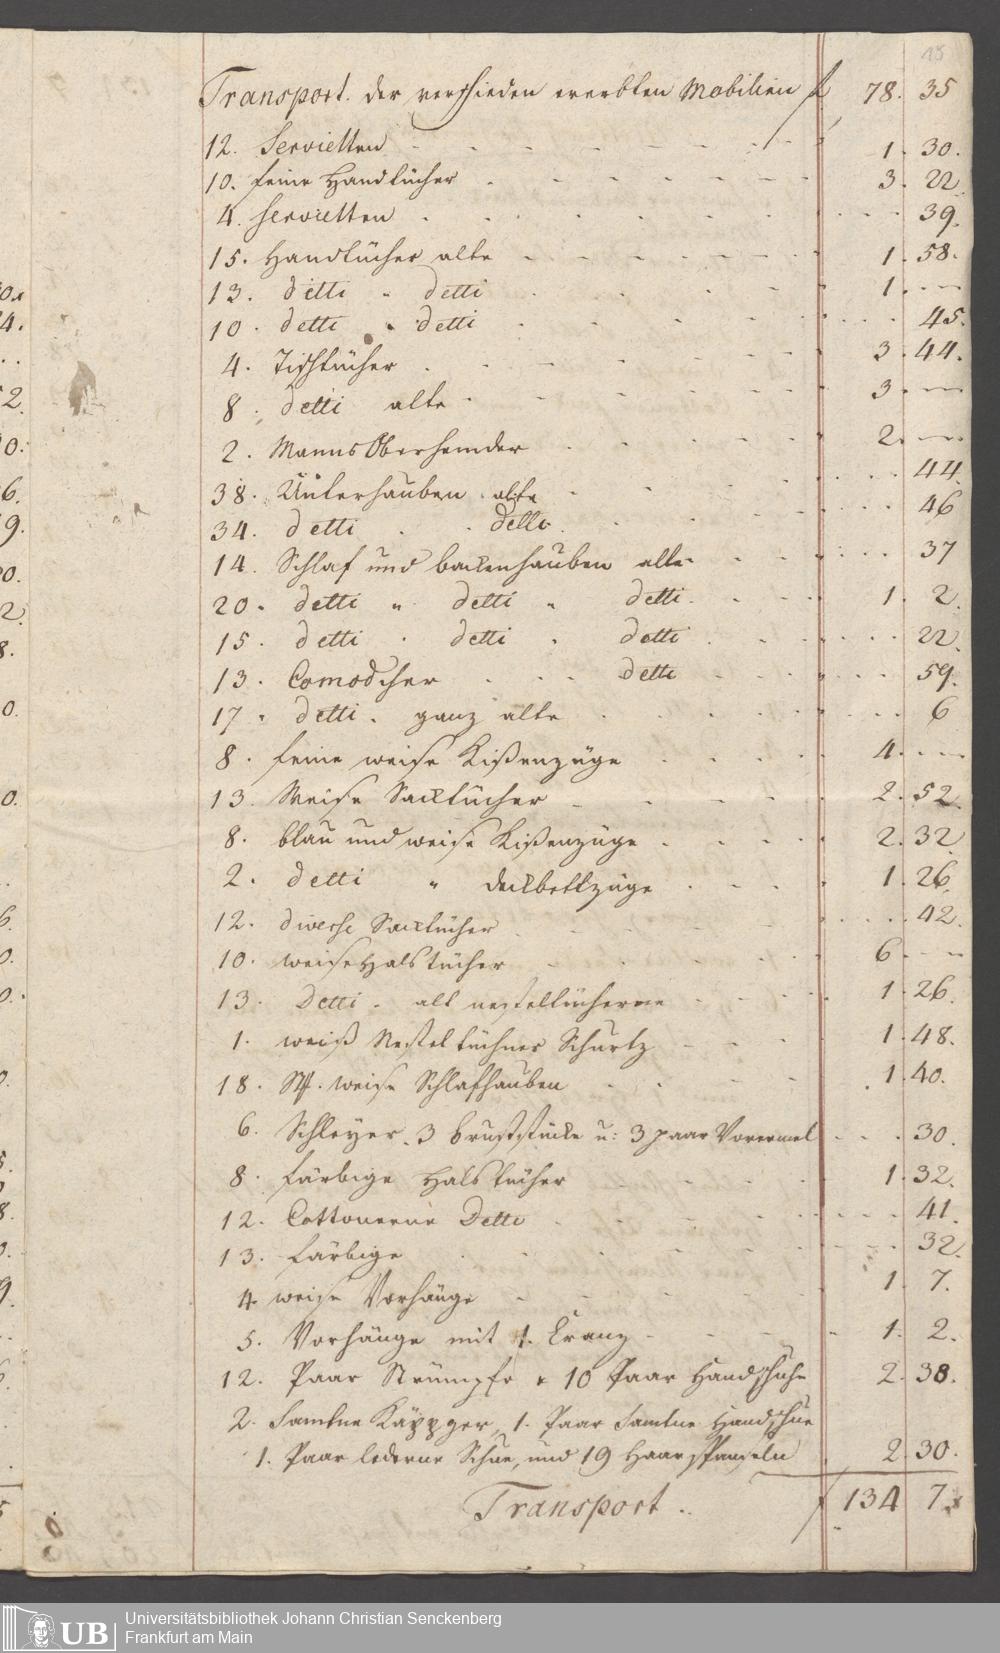 15
Transport. der verschieden ererbten Mobilien f 78. 35
12. Servietten - - - - - - 1. 30.
10. feine Handtücher - - - - - 3. 22.
4. Servietten . . . . . . . 39.
15. Handtücher alte - - - - - 1. 58.
13. detti " detti - - - - 1. --
10. detti " detti - - - . . . 45.
4. Tischtücher - - - - - 3. 44.
8. detti alte - - - - - 3. --
2. Manns Oberhemder - - - - 2. --
38. Unterhauben alte - - - . . . 44
34. detti . . detto . . . . . 46
14. Schlaf und backenhauben alte - - . . . 37
20. detti " detti " detti - - - 1. 2.
15. detti . detti . detti - - . . . 22.
13. Comodcher - - - detti - - . . . 59.
17. detti. ganz alte . . . . . . 6
8. feine weise Kißenzüge . . . . 4. --
13. Weise Sacktücher - - - - 2. 52.
8. blau und weise Kißenzüge . . . 2. 32
2. detti " deckbettzüge . - - 1. 26.
12. diverse Sacktücher - - - . . . 42.
10. weise Halstücher - - - - 6. --
13. Detti. alt nesteltücherne - - - 1. 26.
1. weiß Nesteltüchner Schurtz - - - 1. 48.
18. St. weise Schlafhauben - - - - 1. 40.
6. Schleyer. 3 bruststücke u: 3 paar Vorermel . . . 30.
8. färbige Halstücher - - - - 1. 32.
12. Cottonerne Detto - - - - . . . 41.
13. färbige - - - - - - - 32.
4. weise Vorhänge - - - - - 1. 7.
5. Vorhänge mit 1. Kranz - - - - 1. 2.
12. Paar Strümpfe & 10 Paar Handschuhe 2. 38.
2. Samtne Käppger, 1. Paar Samtne Handschue
1. Paar lederne Schue, und 19 Haar 2. 30.
Transport . . f 134 7.x
UB Universitätsbibliothek Johann Christian Senckenberg
Frankfurt am Main